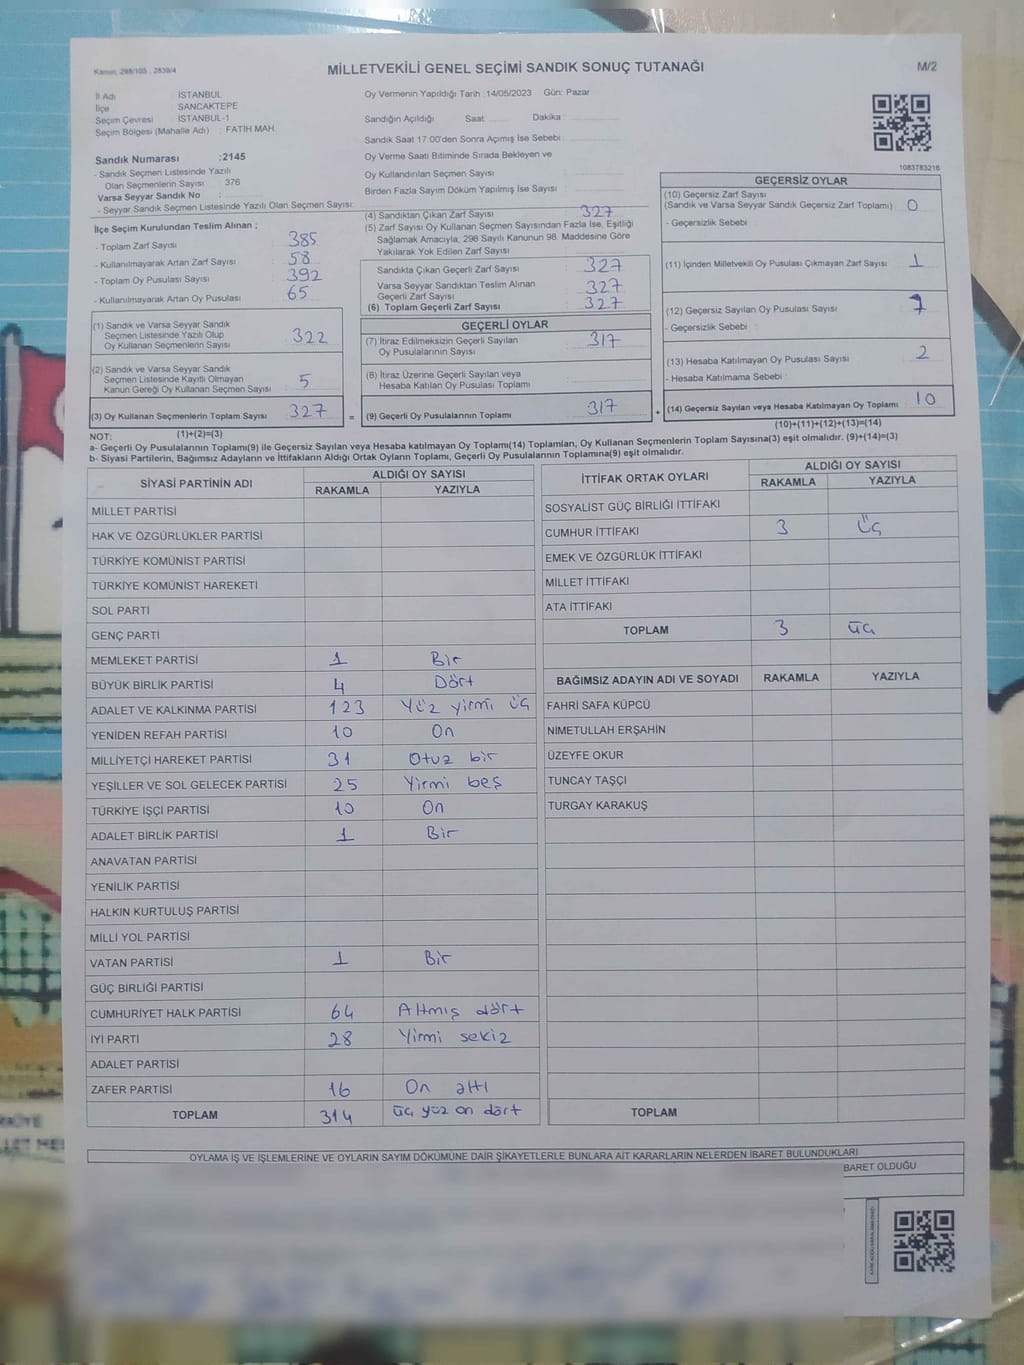 Kanun: 298/105 , 2839/4
MİLLETVEKİLİ GENEL SEÇİMİ SANDIK SONUÇ TUTANAĞI
M/2
İl Adı : İSTANBUL
İlçe : SANCAKTEPE
Seçim Çevresi : İSTANBUL-1
Seçim Bölgesi (Mahalle Adı) : FATİH MAH.
Sandık Numarası :2145
- Sandık Seçmen Listesinde Yazılı
Olan Seçmenlerin Sayısı : 376
Varsa Seyyar Sandık No :
- Seyyar Sandık Seçmen Listesinde Yazılı Olan Seçmen Sayısı:
Oy Vermenin Yapıldığı Tarih :14/05/2023 Gün: Pazar
Sandığın Açıldığı Saat: Dakika :
Sandık Saat 17:00'den Sonra Açımış İse Sebebi :
Oy Verme Saati Bitiminde Sırada Bekleyen ve
Oy Kullandırılan Seçmen Sayısı :
Birden Fazla Sayım Döküm Yapılmış İse Sayısı :
1083783216
İlçe Seçim Kurulundan Teslim Alınan ;
- Toplam Zarf Sayısı : 385
- Kullanılmayarak Artan Zarf Sayısı : 58
- Toplam Oy Pusulası Sayısı : 392
- Kullanılmayarak Artan Oy Pusulası : 65
(1) Sandık ve Varsa Seyyar Sandık
Seçmen Listesinde Yazılı Olup
Oy Kullanan Seçmenlerin Sayısı : 322
(2) Sandık ve Varsa Seyyar Sandık
Seçmen Listesinde Kayıtlı Olmayan
Kanun Gereği Oy Kullanan Seçmen Sayısı : 5
(3) Oy Kullanan Seçmenlerin Toplam Sayısı : 327
(1)+(2)=(3)
(4) Sandıktan Çıkan Zarf Sayısı : 327
(5) Zarf Sayısı Oy Kullanan Seçmen Sayısından Fazla İse, Eşitliği
Sağlamak Amacıyla, 298 Sayılı Kanunun 98. Maddesine Göre
Yakılarak Yok Edilen Zarf Sayısı :
Sandıkta Çıkan Geçerli Zarf Sayısı : 327
Varsa Seyyar Sandıktan Teslim Alınan
Geçerli Zarf Sayısı : 327
(6) Toplam Geçerli Zarf Sayısı : 327
GEÇERLİ OYLAR
(7) İtiraz Edilmeksizin Geçerli Sayılan
Oy Pusulalarının Sayısı : 317
(8) İtiraz Üzerine Geçerli Sayılan veya
Hesaba Katılan Oy Pusulası Toplamı :
= (9) Geçerli Oy Pusulalarının Toplamı : 317
GEÇERSİZ OYLAR
(10) Geçersiz Zarf Sayısı
(Sandık ve Varsa Seyyar Sandık Geçersiz Zarf Toplamı) : 0
- Geçersizlik Sebebi :
(11) İçinden Milletvekili Oy Pusulası Çıkmayan Zarf Sayısı : 1
(12) Geçersiz Sayılan Oy Pusulası Sayısı : 7
- Geçersizlik Sebebi :
(13) Hesaba Katılmayan Oy Pusulası Sayısı : 2
- Hesaba Katılmama Sebebi :
+ (14) Geçersiz Sayılan veya Hesaba Katılmayan Oy Toplamı : 10
(10)+(11)+(12)+(13)=(14)
NOT:
a- Geçerli Oy Pusulasının Toplamı(9) ile Geçersiz Sayılan veya Hesaba katılmayan Oy Toplamı(14) Toplamları, Oy Kullanan Seçmenlerin Toplam Sayısına(3) eşit olmalıdır. (9)+(14)=(3)
b- Siyasi Partilerin, Bağımsız Adayların ve İttifakların Aldığı Ortak Oyların Toplamı, Geçerli Oy Pusulalarının Toplamına(9) eşit olmalıdır.
SİYASİ PARTİNİN ADI ALDIĞI OY SAYISI
RAKAMLA YAZIYLA
MİLLET PARTİSİ
HAK VE ÖZGÜRLÜKLER PARTİSİ
TÜRKİYE KOMÜNİST PARTİSİ
TÜRKİYE KOMÜNİST HAREKETİ
SOL PARTİ
GENÇ PARTİ
MEMLEKET PARTİSİ 1 Bir
BÜYÜK BİRLİK PARTİSİ 4 Dört
ADALET VE KALKINMA PARTİSİ 123 Yüz yirmi üç
YENİDEN REFAH PARTİSİ 10 On
MİLLİYETÇİ HAREKET PARTİSİ 31 Otuz bir
YEŞİLLER VE SOL GELECEK PARTİSİ 25 Yirmi beş
TÜRKİYE İŞÇİ PARTİSİ 10 On
ADALET BİRLİK PARTİSİ 1 Bir
ANAVATAN PARTİSİ
YENİLİK PARTİSİ
HALKIN KURTULUŞ PARTİSİ
MİLLİ YOL PARTİSİ
VATAN PARTİSİ 1 Bir
GÜÇ BİRLİĞİ PARTİSİ
CUMHURİYET HALK PARTİSİ 64 Altmış dört
İYİ PARTİ 28 Yirmi sekiz
ADALET PARTİSİ
ZAFER PARTİSİ 16 On altı
TOPLAM 314 üç yüz on dört
İTTİFAK ORTAK OYLARI ALDIĞI OY SAYISI
RAKAMLA YAZIYLA
SOSYALİST GÜÇ BİRLİĞİ İTTİFAKI
CUMHUR İTTİFAKI 3 Üç
EMEK VE ÖZGÜRLÜK İTTİFAKI
MİLLET İTTİFAKI
ATA İTTİFAKI
TOPLAM 3 üç
BAĞIMSIZ ADAYIN ADI VE SOYADI RAKAMLA YAZIYLA
FAHRİ SAFA KÜPCÜ
NİMETULLAH ERŞAHİN
ÜZEYFE OKUR
TUNCAY TAŞÇI
TURGAY KARAKUŞ
TOPLAM
OYLAMA İŞ VE İŞLEMLERİNE VE OYLARIN SAYIM DÖKÜMÜNE DAİR ŞİKAYETLERLE BUNLARA AİT KARARLARIN NELERDEN İBARET BULUNDUKLARI
BARET OLDUĞU